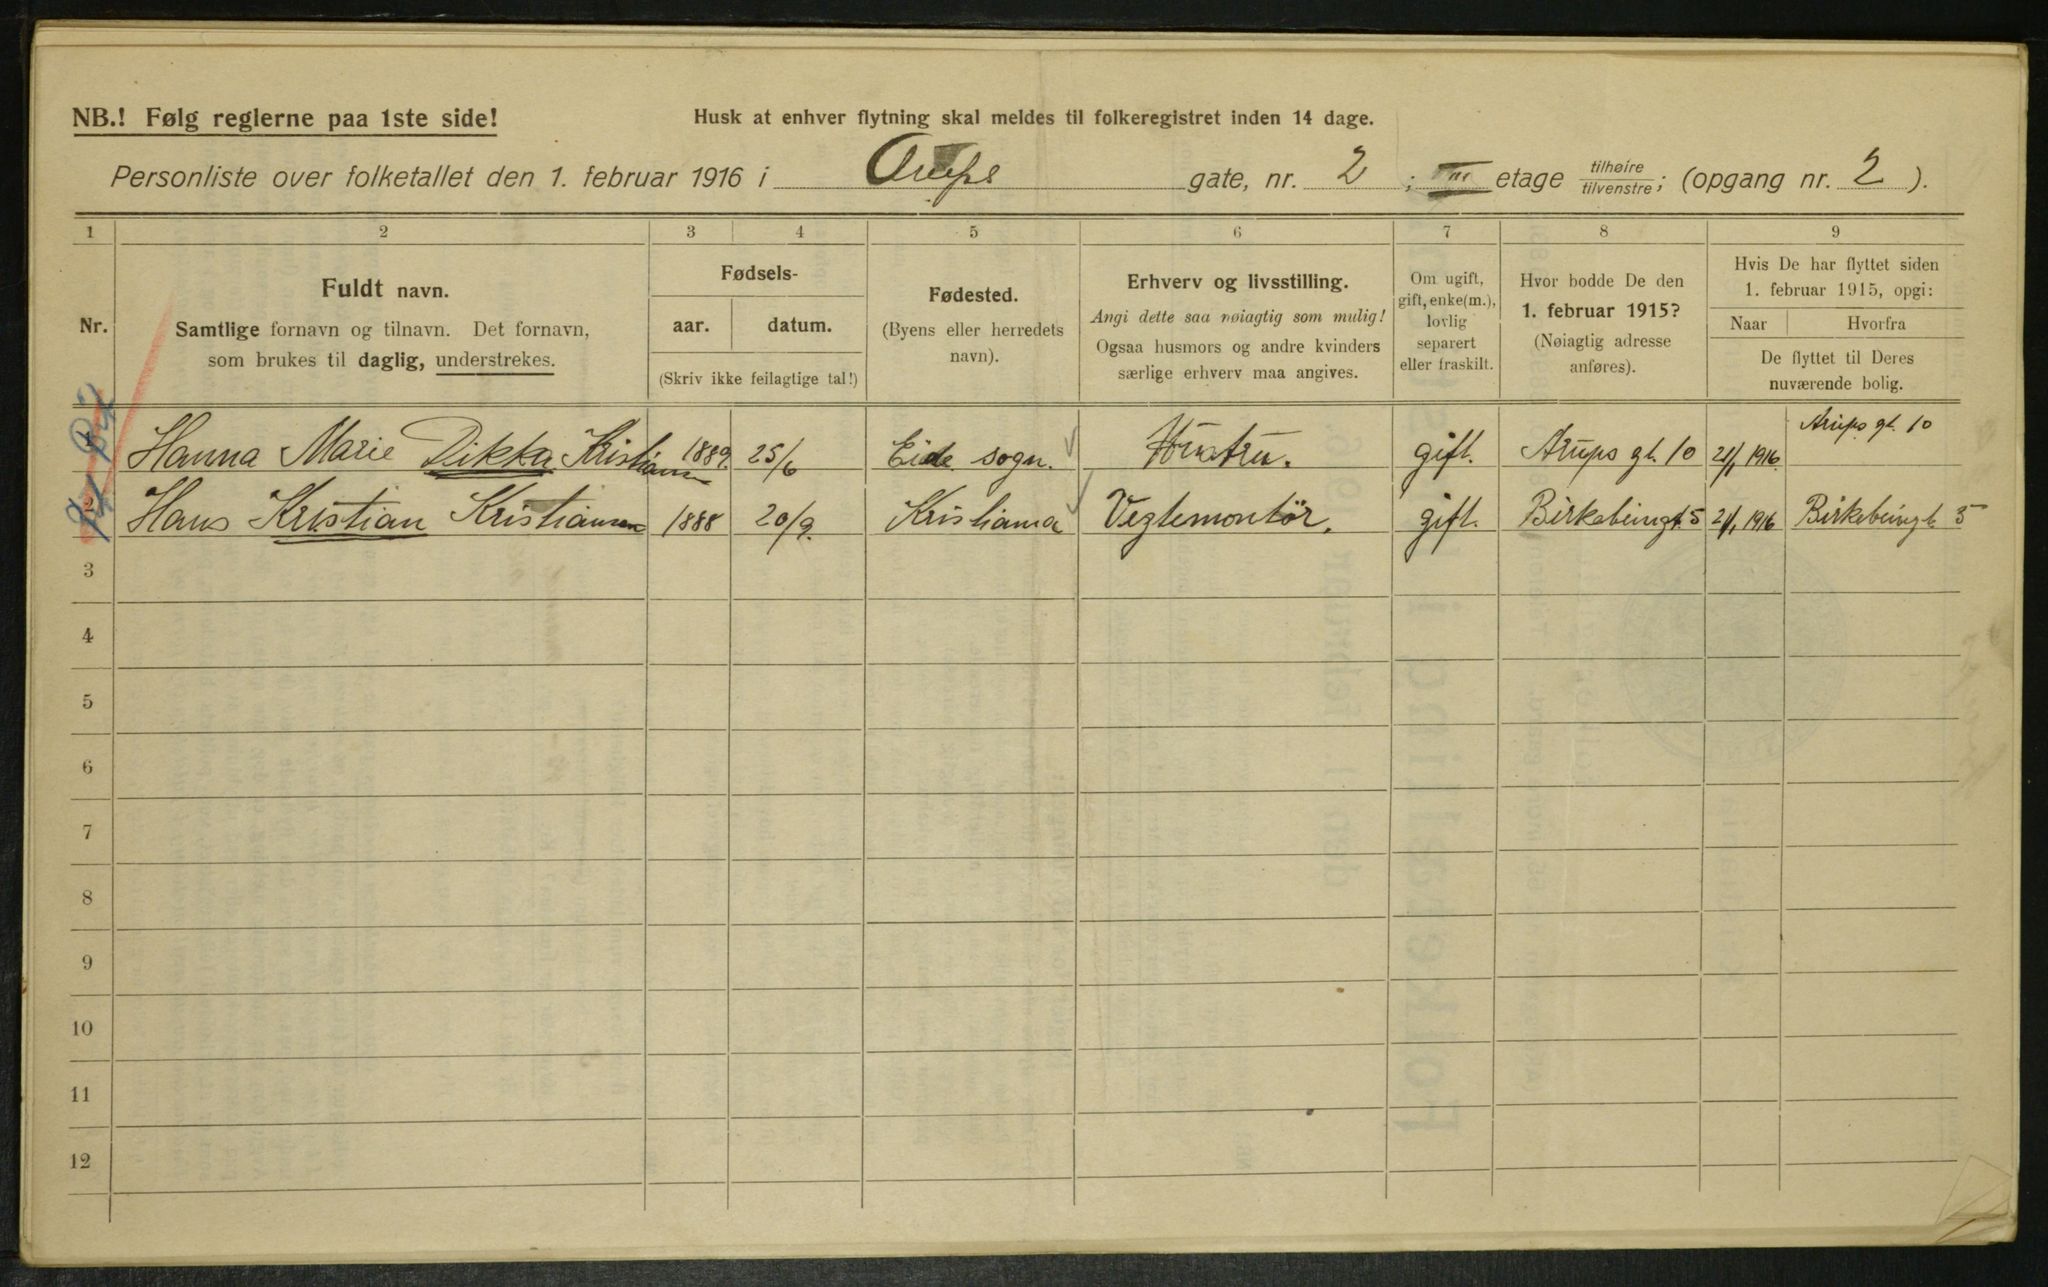 NB.! Følg reglerne paa 1ste side!
Husk at enhver flytning skal meldes til folkeregistret inden 14 dage.
Personliste over folketallet den 1. februar 1916 i Arups gate, nr. 2 ; III etage tilhøire tilvenstre; (opgang nr. 2 ).
1 2 3 4 5 6 7 8 9
Nr.
Fuldt navn.
Samtlige fornavn og tilnavn. Det fornavn,
som brukes til daglig, understrekes.
Fødsels-
aar. datum.
(Skriv ikke feilagtige tal!)
Fødested.
(Byens eller herredets
navn).
Erhverv og livsstilling.
Angi dette saa nøiagtig som mulig!
Ogsaa husmors og andre kvinders
særlige erhverv maa angives.
Om ugift,
gift, enke(m.),
lovlig
separert
eller fraskilt.
Hvor bodde De den
1. februar 1915?
(Nøiagtig adresse
anføres).
Hvis De har flyttet siden
1. februar 1915, opgi:
Naar Hvorfra
De flyttet til Deres
nuværende bolig.
1 Hanna Marie Dikka Kristiansen 1889. 25/6 Eide sogn. Hustru. gift. Arups gt. 10 21/1 1916 Arups gt. 10
2 Hans Kristian Kristiansen 1888 20/9. Kristiania Vegtemontör. gift. Birkebeingt. 5 21/1 1916 Birkebeingt. 5
3
4
5
6
7
8
9
10
11
12